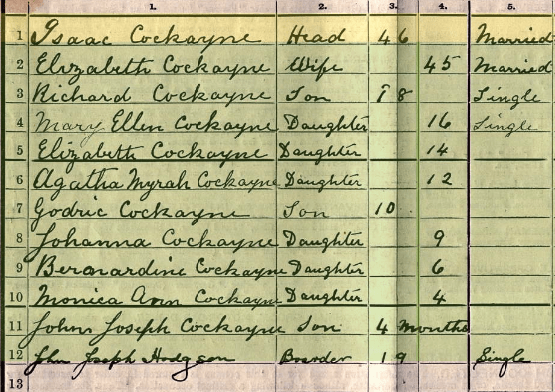 1. 2. 3. 4. 5.
1 Isaac Cockayne Head 46 Married
2 Elizabeth Cockayne Wife 45 Married
3 Richard Cockayne Son 18 Single
4 Mary Ellen Cockayne Daughter 16 Single
5 Elizabeth Cockayne Daughter 14
6 Agatha Myrah Cockayne Daughter 12
7 Godric Cockayne Son 10
8 Johanna Cockayne Daughter 9
9 Bernardine Cockayne Daughter 6
10 Monica Ann Cockayne Daughter 4
11 John Joseph Cockayne Son 4 months
12 John Joseph Hodgson Boarder 19 Single
13